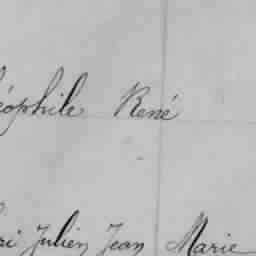 éophile René
ri Julien Jean Marie